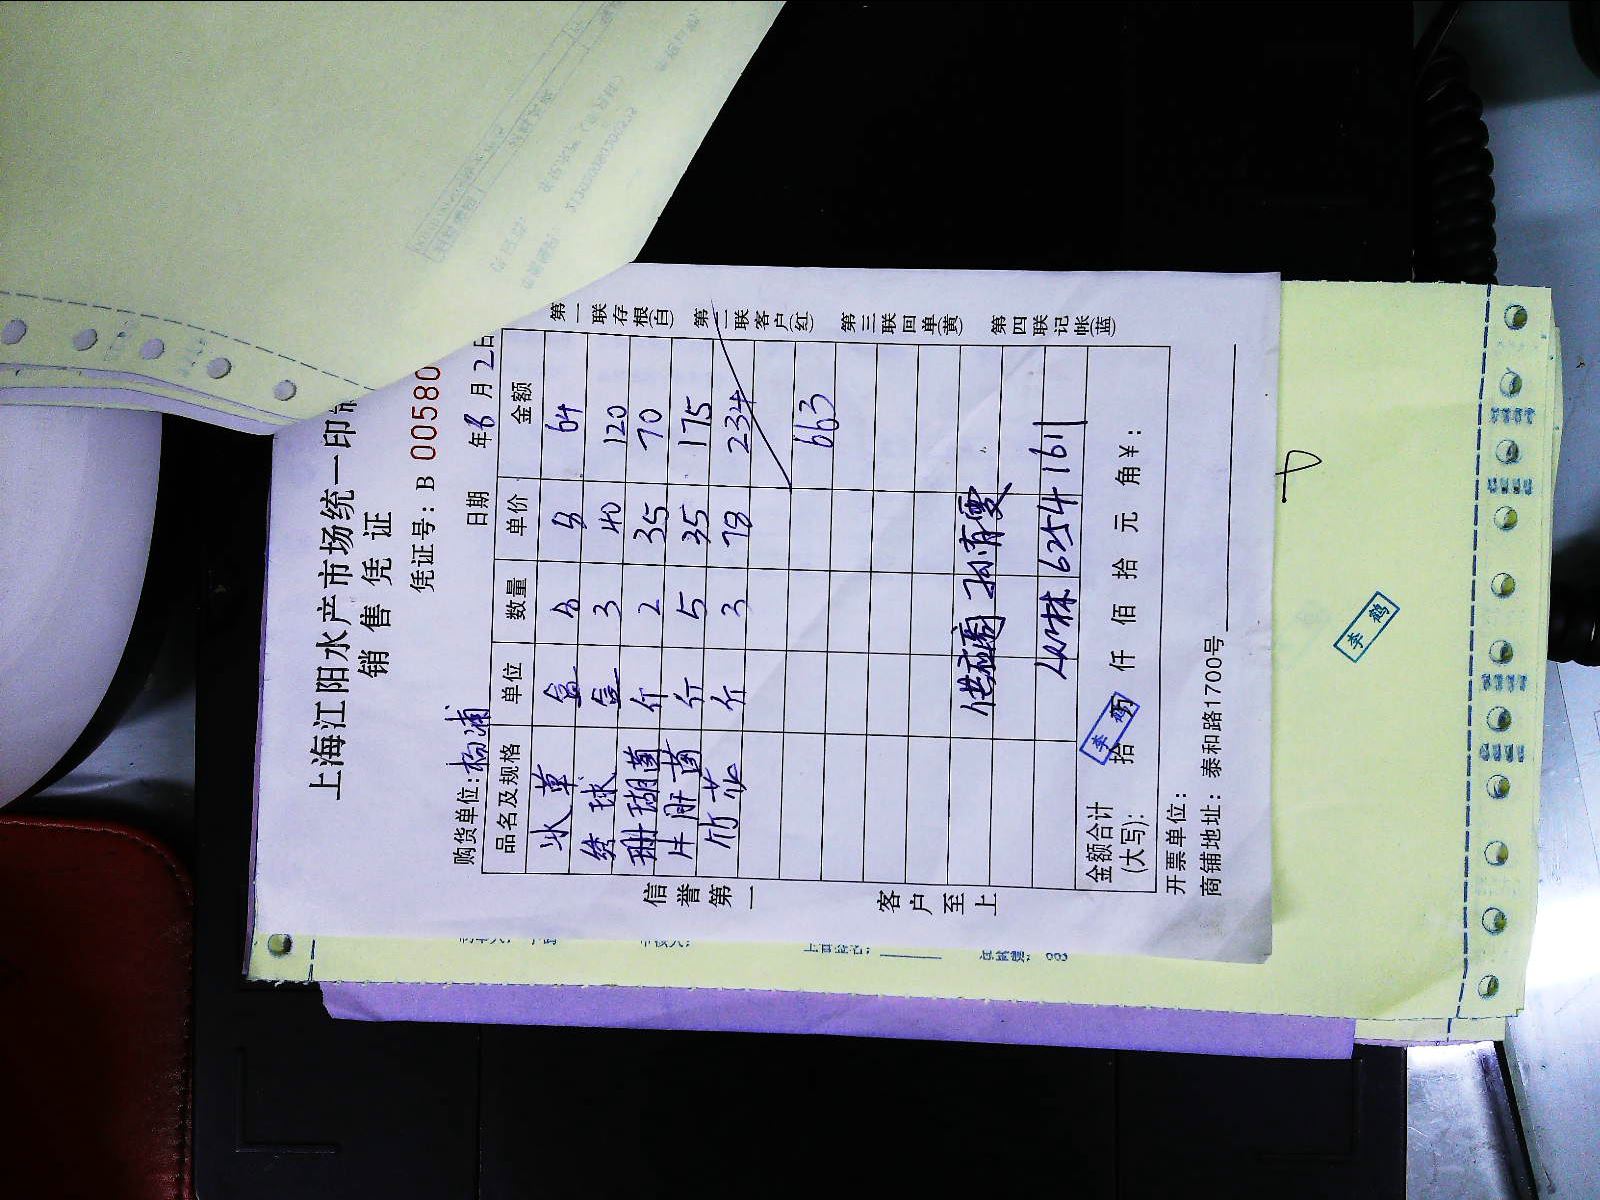 上海江阳水产市场统一印制
销售凭证
凭证号：B 00580
购货单位：杨浦 日期 年8月2日
品名及规格 单位 数量 单价 金额
冰草 盒 8 8 64
绣球 盒 3 40 120
珊瑚菌 斤 2 35 70
牛肝菌 斤 5 35 175
竹荪 斤 3 78 234
663
供应商 孙育雯
6254 1611
金额合计
(大写)： 拾 万 仟 佰 拾 元 角 ¥：
李鹤
开票单位：
商铺地址：泰和路1700号
信誉第一
客户至上
第一联存根(白)
第二联客户(红)
第三联回单(黄)
第四联记帐(蓝)
李鹤